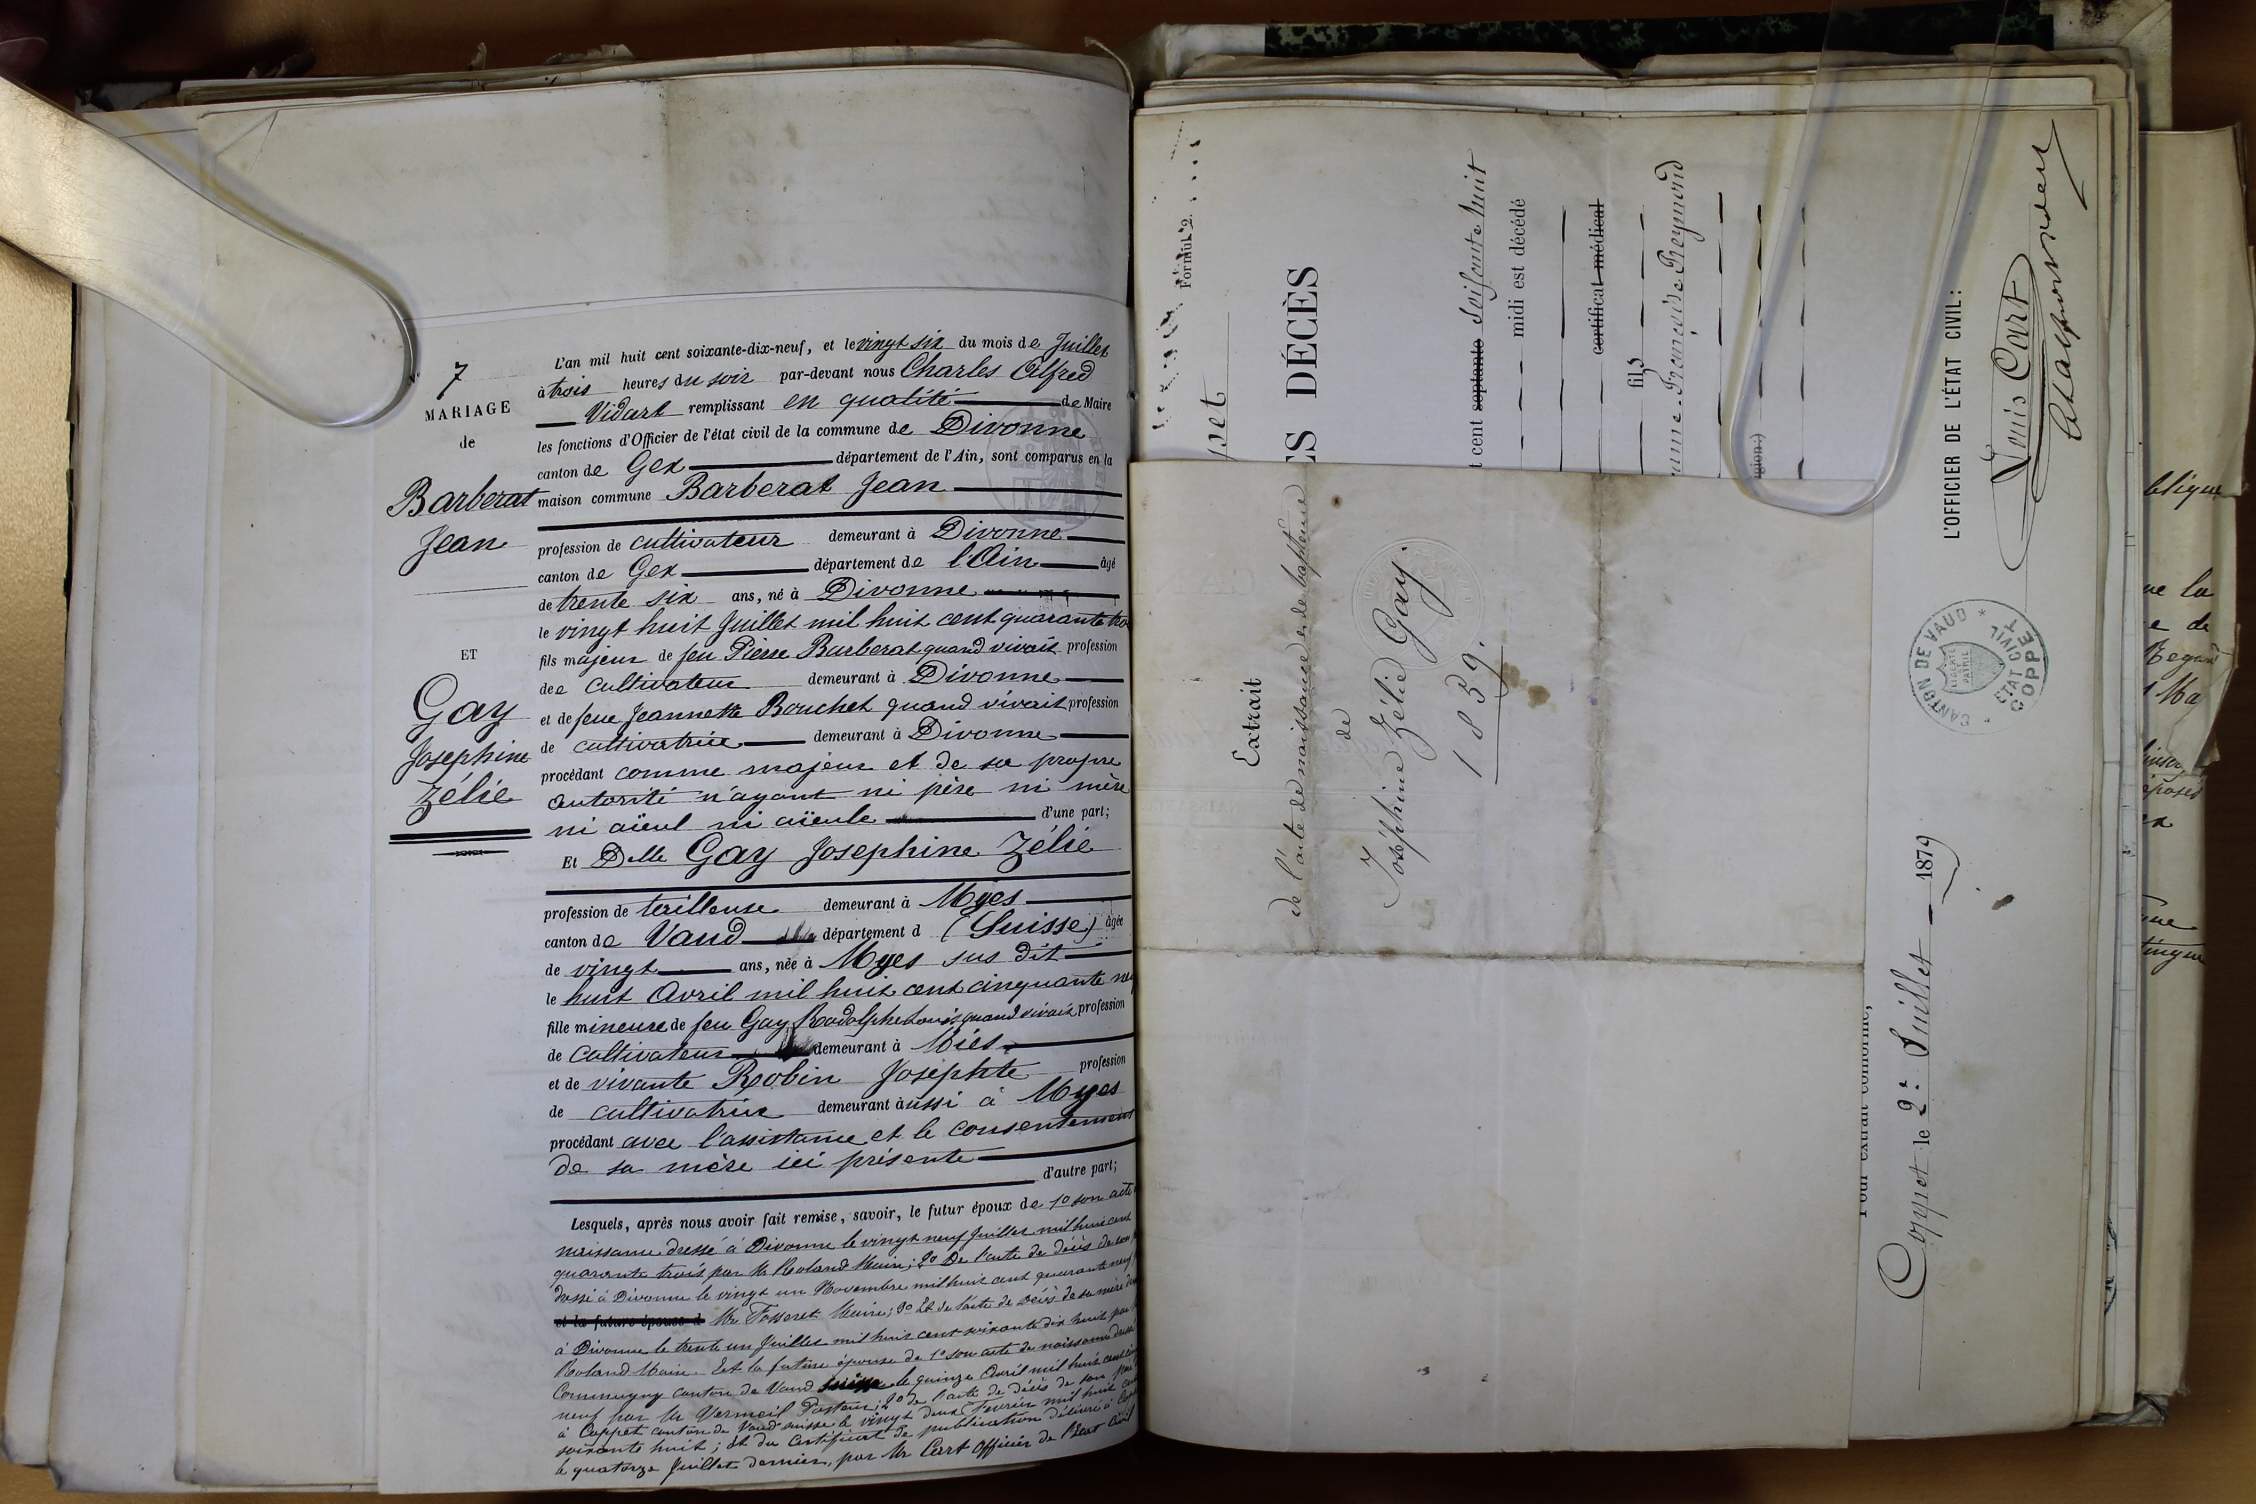 7
MARIAGE
de
Barberat
Jean
ET
Gay
Josephine
Zélie
L'an mil huit cent soixante-dix-neuf, et le vingt six du mois de Juillet
à trois heures du soir par-devant nous Charles Alfred
Vidart remplissant en qualité de Maire
les fonctions d'Officier de l'état civil de la commune de Divonne
canton de Gex département de l'Ain, sont comparus en la
maison commune Barberat Jean
profession de cultivateur demeurant à Divonne
canton de Gex département de l'Ain âgé
de trente six ans, né à Divonne
le vingt huit Juillet mil huit cent quarante tro
fils majeur de feu Pierre Barberat quand vivait profession
dee cultivateur demeurant à Divonne
et de feue Jeannette Bouchet quand vivait profession
de cultivatrice demeurant à Divonne
procédant comme majeur et de sa propre
autorité n'ayant ni père ni mère
ni aïeul ni aïeule d'une part;
Et Delle Gay Josephine Zélie
profession de demeurant à Myes
canton de Vaud département d (Suisse) âgée
de vingt ans, née à Myes sus dit
le huit Avril mil huit cent cinquante neu
fille mineure de feu Gay Rodolphe Louis quand vivait profession
de cultivateur demeurant à Miés
et de vivante Robin Josephte profession
de cultivatrice demeurant aussi à Myes
procédant avec l'assistance et le consentement
de sa mère ici présente d'autre part;
Lesquels, après nous avoir fait remise, savoir, le futur époux de 1º son acte
naissance dressé à Divonne le vingt neuf Juillet mil huit cent
quarante trois par Mr Roland Maire; 2º De l'acte de décès de son
dressé à Divonne le vingt un Novembre mil huit cent quarante neuf
et la future épouse d Mr Fosseret Maire; 3º Et de l'acte de décès de sa mère
à Divonne le trente un Juillet mil huit cent soixante dix huit par
Roland Maire. Et la future épouse de 1º son acte de naissance dressé
Commugny canton de Vaud Suisse le quinze Avril mil huit cent
neuf par Mr Vermeil Pasteur; 2º de l'acte de décès de son
à Coppet canton de Vaud suisse le vingt deux Fevrier mil huit cent
soixante huit; Et du certificat de publication délivré à
le quatorze Juillet dernier, par Mr Cart Officier de l'Etat Civil
Formul. 2.
pet
ES DÉCÈS
t cent septante soixante huit
midi est décédé
certificat médical
fils
Françoise Reymond
gion:)
Extrait
de l'acte de naissance et de baptême
de
Joséphine Zélie Gay.
1859.
Pour extrait conforme,
Coppet le 2e Juillet 1879
L'OFFICIER DE L'ÉTAT CIVIL:
Louis Cart
CANTON DE VAUD
LIBERTÉ ET PATRIE
ETAT CIVIL
COPPET
blique
ue la
e de
Ma